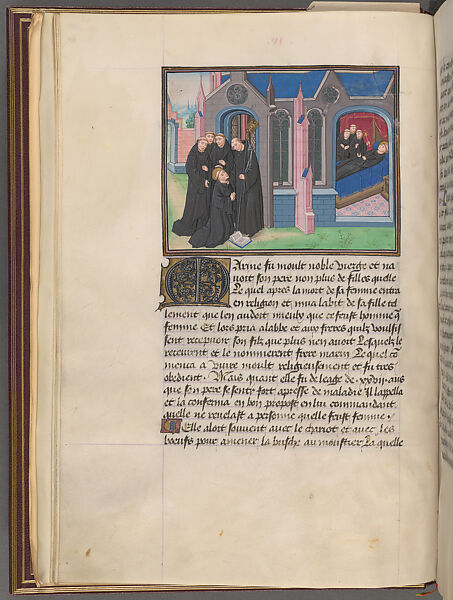 Marine fu moult noble vierge et na
uoit son pere non plus de filles quelle
Le quel apres la mort de sa femme entra
en religion et mua labit de sa fille tel
lement que len cuidoit mieulx que ce fust homme que
femme Et lors pria alabbe et aux freres quilz voulsis
sent recepuoir son filz que plus nen auoit Lesquelz le
receurent et le nommerent frere marin Le quel com
menca a viure moult religieusement et fu tres
obedient. Mais quant elle fu de leage de xxvij. ans
que son pere se senty fort apresse de maladie Il lappella
et la conferma en bon propost en lui commandant
quelle ne reuelast a personne quelle fust femme.
Elle aloit souuent auec le chariot et auec les
boeufs pour amener la busche au moustier La quelle